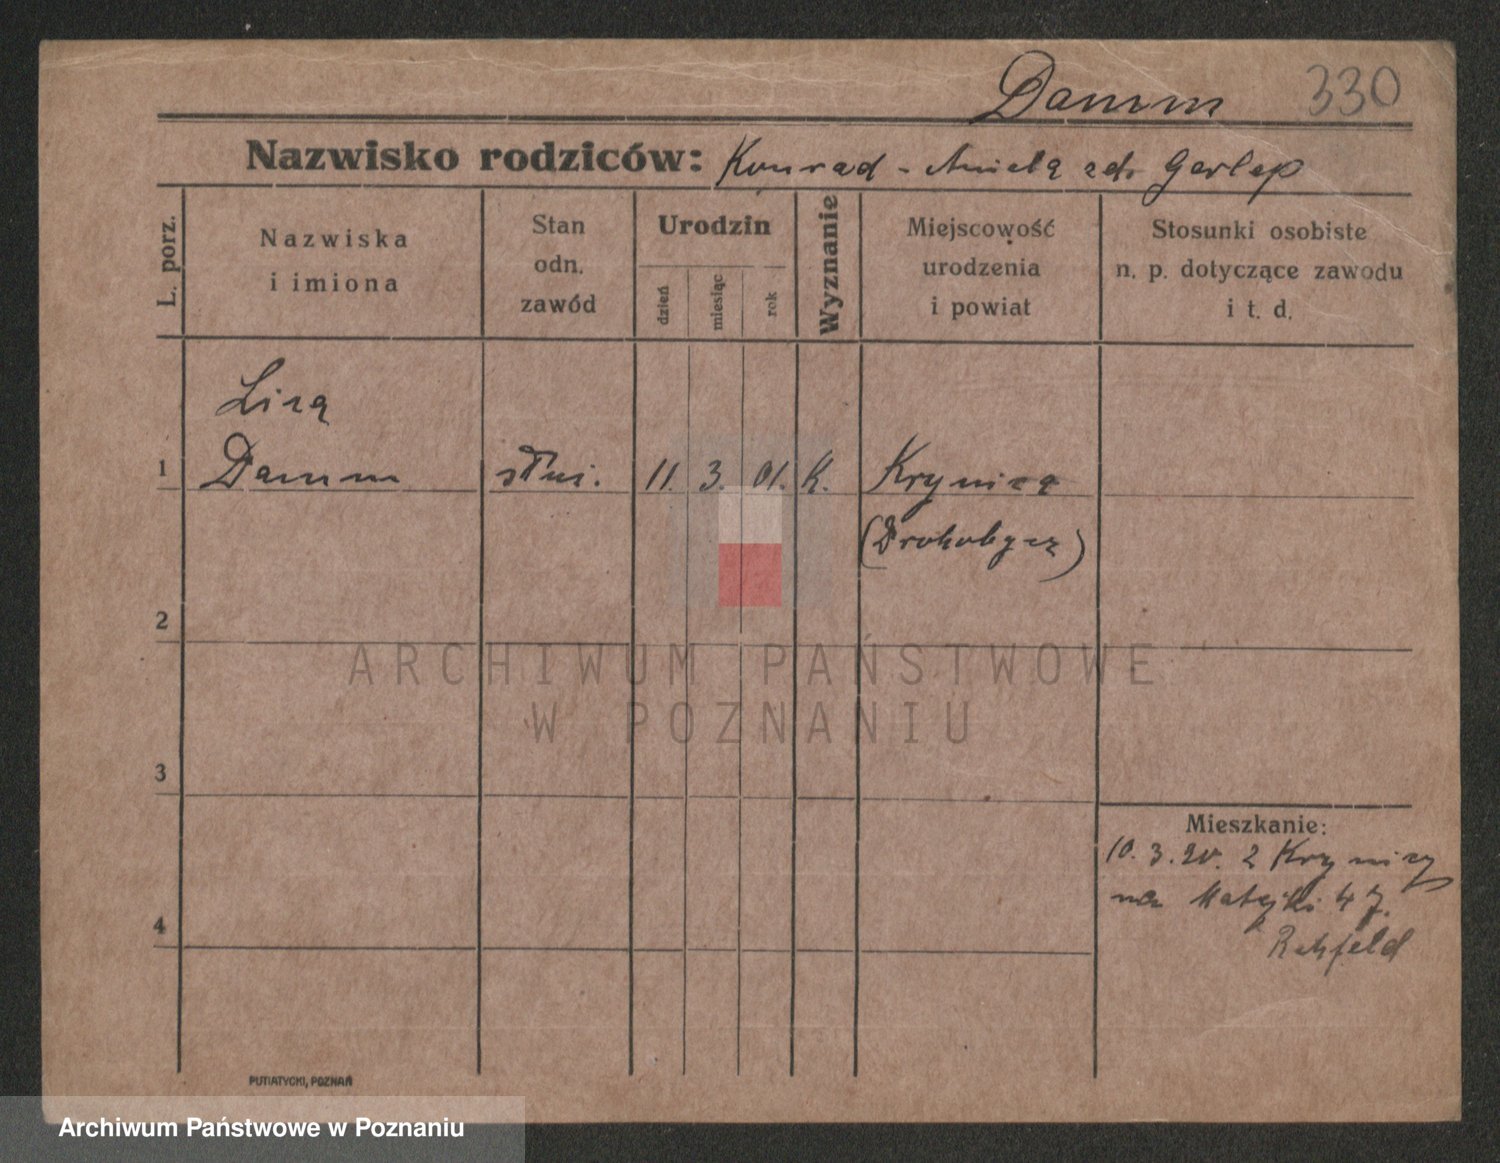 Damm 330
Nazwisko rodziców: Konrad - Aniela zd. Gerlep
L. porz.
Nazwiska
i imiona
Stan
odn.
zawód
Urodzin
dzień
miesiąc
rok
Wyznanie
Miejscowość
urodzenia
i powiat
Stosunki osobiste
n. p. dotyczące zawodu
i t. d.
Liza
1 Damm służ. 11. 3. 01. K. Krynica
(Drohobycz)
2
3
4
Mieszkanie:
10. 3. 20. z Krynicy
na Matejki 47.
Rehfeld
PUTIATYCKI, POZNAŃ
ARCHIWUM PAŃSTWOWE
W POZNANIU
Archiwum Państwowe w Poznaniu